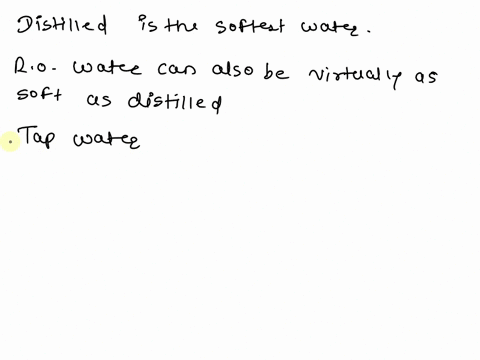 Distilled is the softest water.
R.O. water can also be virtually as
soft as distilled
Tap water